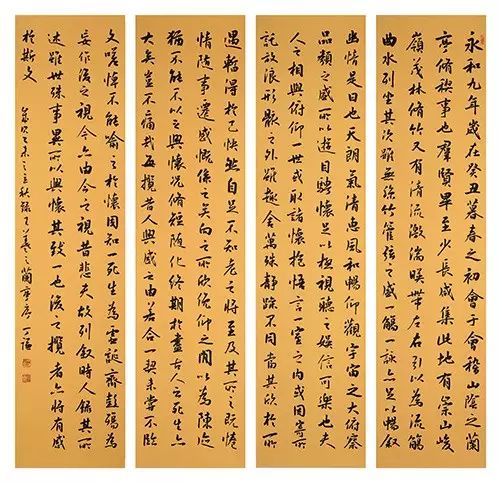 永和九年歲在癸丑暮春之初會于會稽山陰之蘭
亭脩稧事也羣賢畢至少長咸集此地有崇山峻
嶺茂林脩竹又有清流激湍暎帶左右引以為流觴
曲水列坐其次雖無絲竹管弦之盛一觴一詠亦足以暢叙
幽情是日也天朗氣清惠風和暢仰觀宇宙之大俯察
品類之盛所以遊目騁懷足以極視聽之娛信可樂也夫
人之相與俯仰一世或取諸懷抱悟言一室之內或因寄所
託放浪形骸之外雖趣舍萬殊静躁不同當其欣於所
遇暫得於己快然自足不知老之將至及其所之既惓
情隨事遷感慨係之矣向之所欣俛仰之閒以為陳迹
猶不能不以之興懷況脩短隨化終期於盡古人云死生亦
大矣豈不痛哉每攬昔人興感之由若合一契未嘗不臨
文嗟悼不能喻之於懷固知一死生為虛誕齊彭殤為
妄作後之視今亦由今之視昔悲夫故列叙時人錄其所
述雖世殊事異所以興懷其致一也後之攬者亦將有感
於斯文
歲次 之立秋錄王羲之蘭亭序